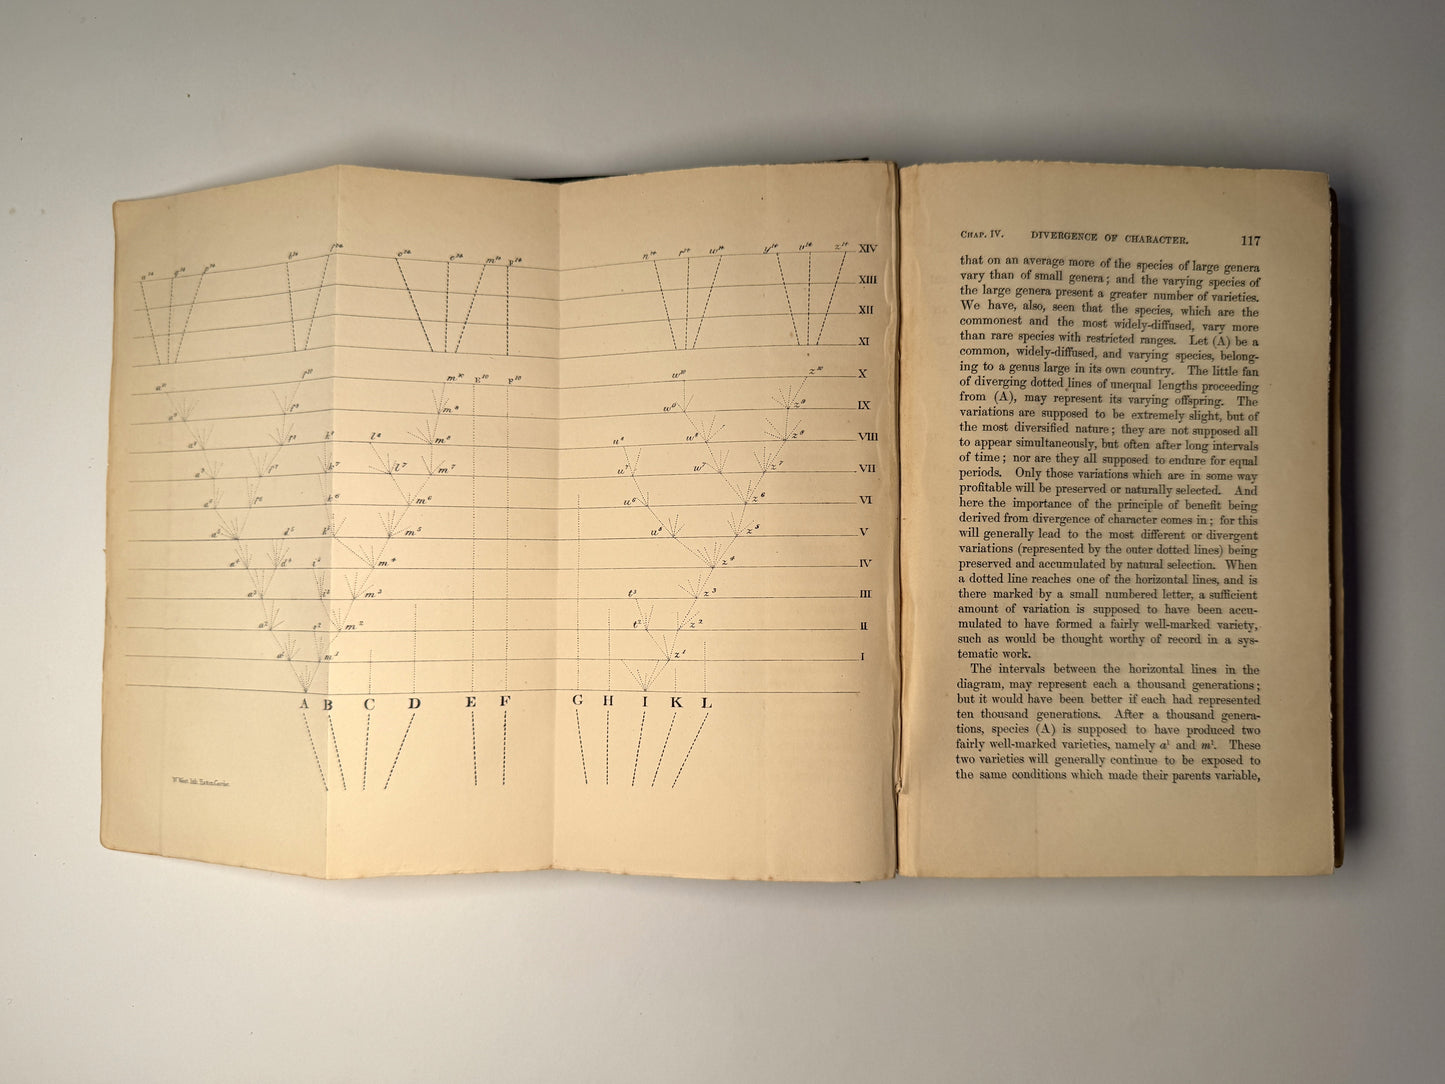 a¹⁴ q¹⁴ p¹⁴ b¹⁴ f¹⁴ o¹⁴ e¹⁴ m¹⁴ F¹⁴ n¹⁴ r¹⁴ w¹⁴ y¹⁴ v¹⁴ z¹⁴ XIV
XIII
XII
XI
a¹⁰ f¹⁰ m¹⁰ E¹⁰ F¹⁰ w¹⁰ z¹⁰ X
a⁹ f⁹ m⁹ w⁹ z⁹ IX
a⁸ f⁸ k⁸ l⁸ m⁸ u⁸ w⁸ z⁸ VIII
a⁷ f⁷ k⁷ l⁷ m⁷ u⁷ w⁷ z⁷ VII
a⁶ f⁶ k⁶ m⁶ u⁶ z⁶ VI
a⁵ d⁵ k⁵ m⁵ u⁵ z⁵ V
a⁴ d⁴ i⁴ m⁴ z⁴ IV
a³ i³ m³ t³ z³ III
a² s² m² t² z² II
a¹ m¹ z¹ I
A B C D E F G H I K L
W. West lith. Hatton Garden
CHAP. IV. DIVERGENCE OF CHARACTER. 117
that on an average more of the species of large genera
vary than of small genera; and the varying species of
the large genera present a greater number of varieties.
We have, also, seen that the species, which are the
commonest and the most widely-diffused, vary more
than rare species with restricted ranges. Let (A) be a
common, widely-diffused, and varying species, belong-
ing to a genus large in its own country. The little fan
of diverging dotted lines of unequal lengths proceeding
from (A), may represent its varying offspring. The
variations are supposed to be extremely slight, but of
the most diversified nature; they are not supposed all
to appear simultaneously, but often after long intervals
of time; nor are they all supposed to endure for equal
periods. Only those variations which are in some way
profitable will be preserved or naturally selected. And
here the importance of the principle of benefit being
derived from divergence of character comes in; for this
will generally lead to the most different or divergent
variations (represented by the outer dotted lines) being
preserved and accumulated by natural selection. When
a dotted line reaches one of the horizontal lines, and is
there marked by a small numbered letter, a sufficient
amount of variation is supposed to have been accu-
mulated to have formed a fairly well-marked variety,
such as would be thought worthy of record in a sys-
tematic work.
The intervals between the horizontal lines in the
diagram, may represent each a thousand generations;
but it would have been better if each had represented
ten thousand generations. After a thousand genera-
tions, species (A) is supposed to have produced two
fairly well-marked varieties, namely a¹ and m¹. These
two varieties will generally continue to be exposed to
the same conditions which made their parents variable,